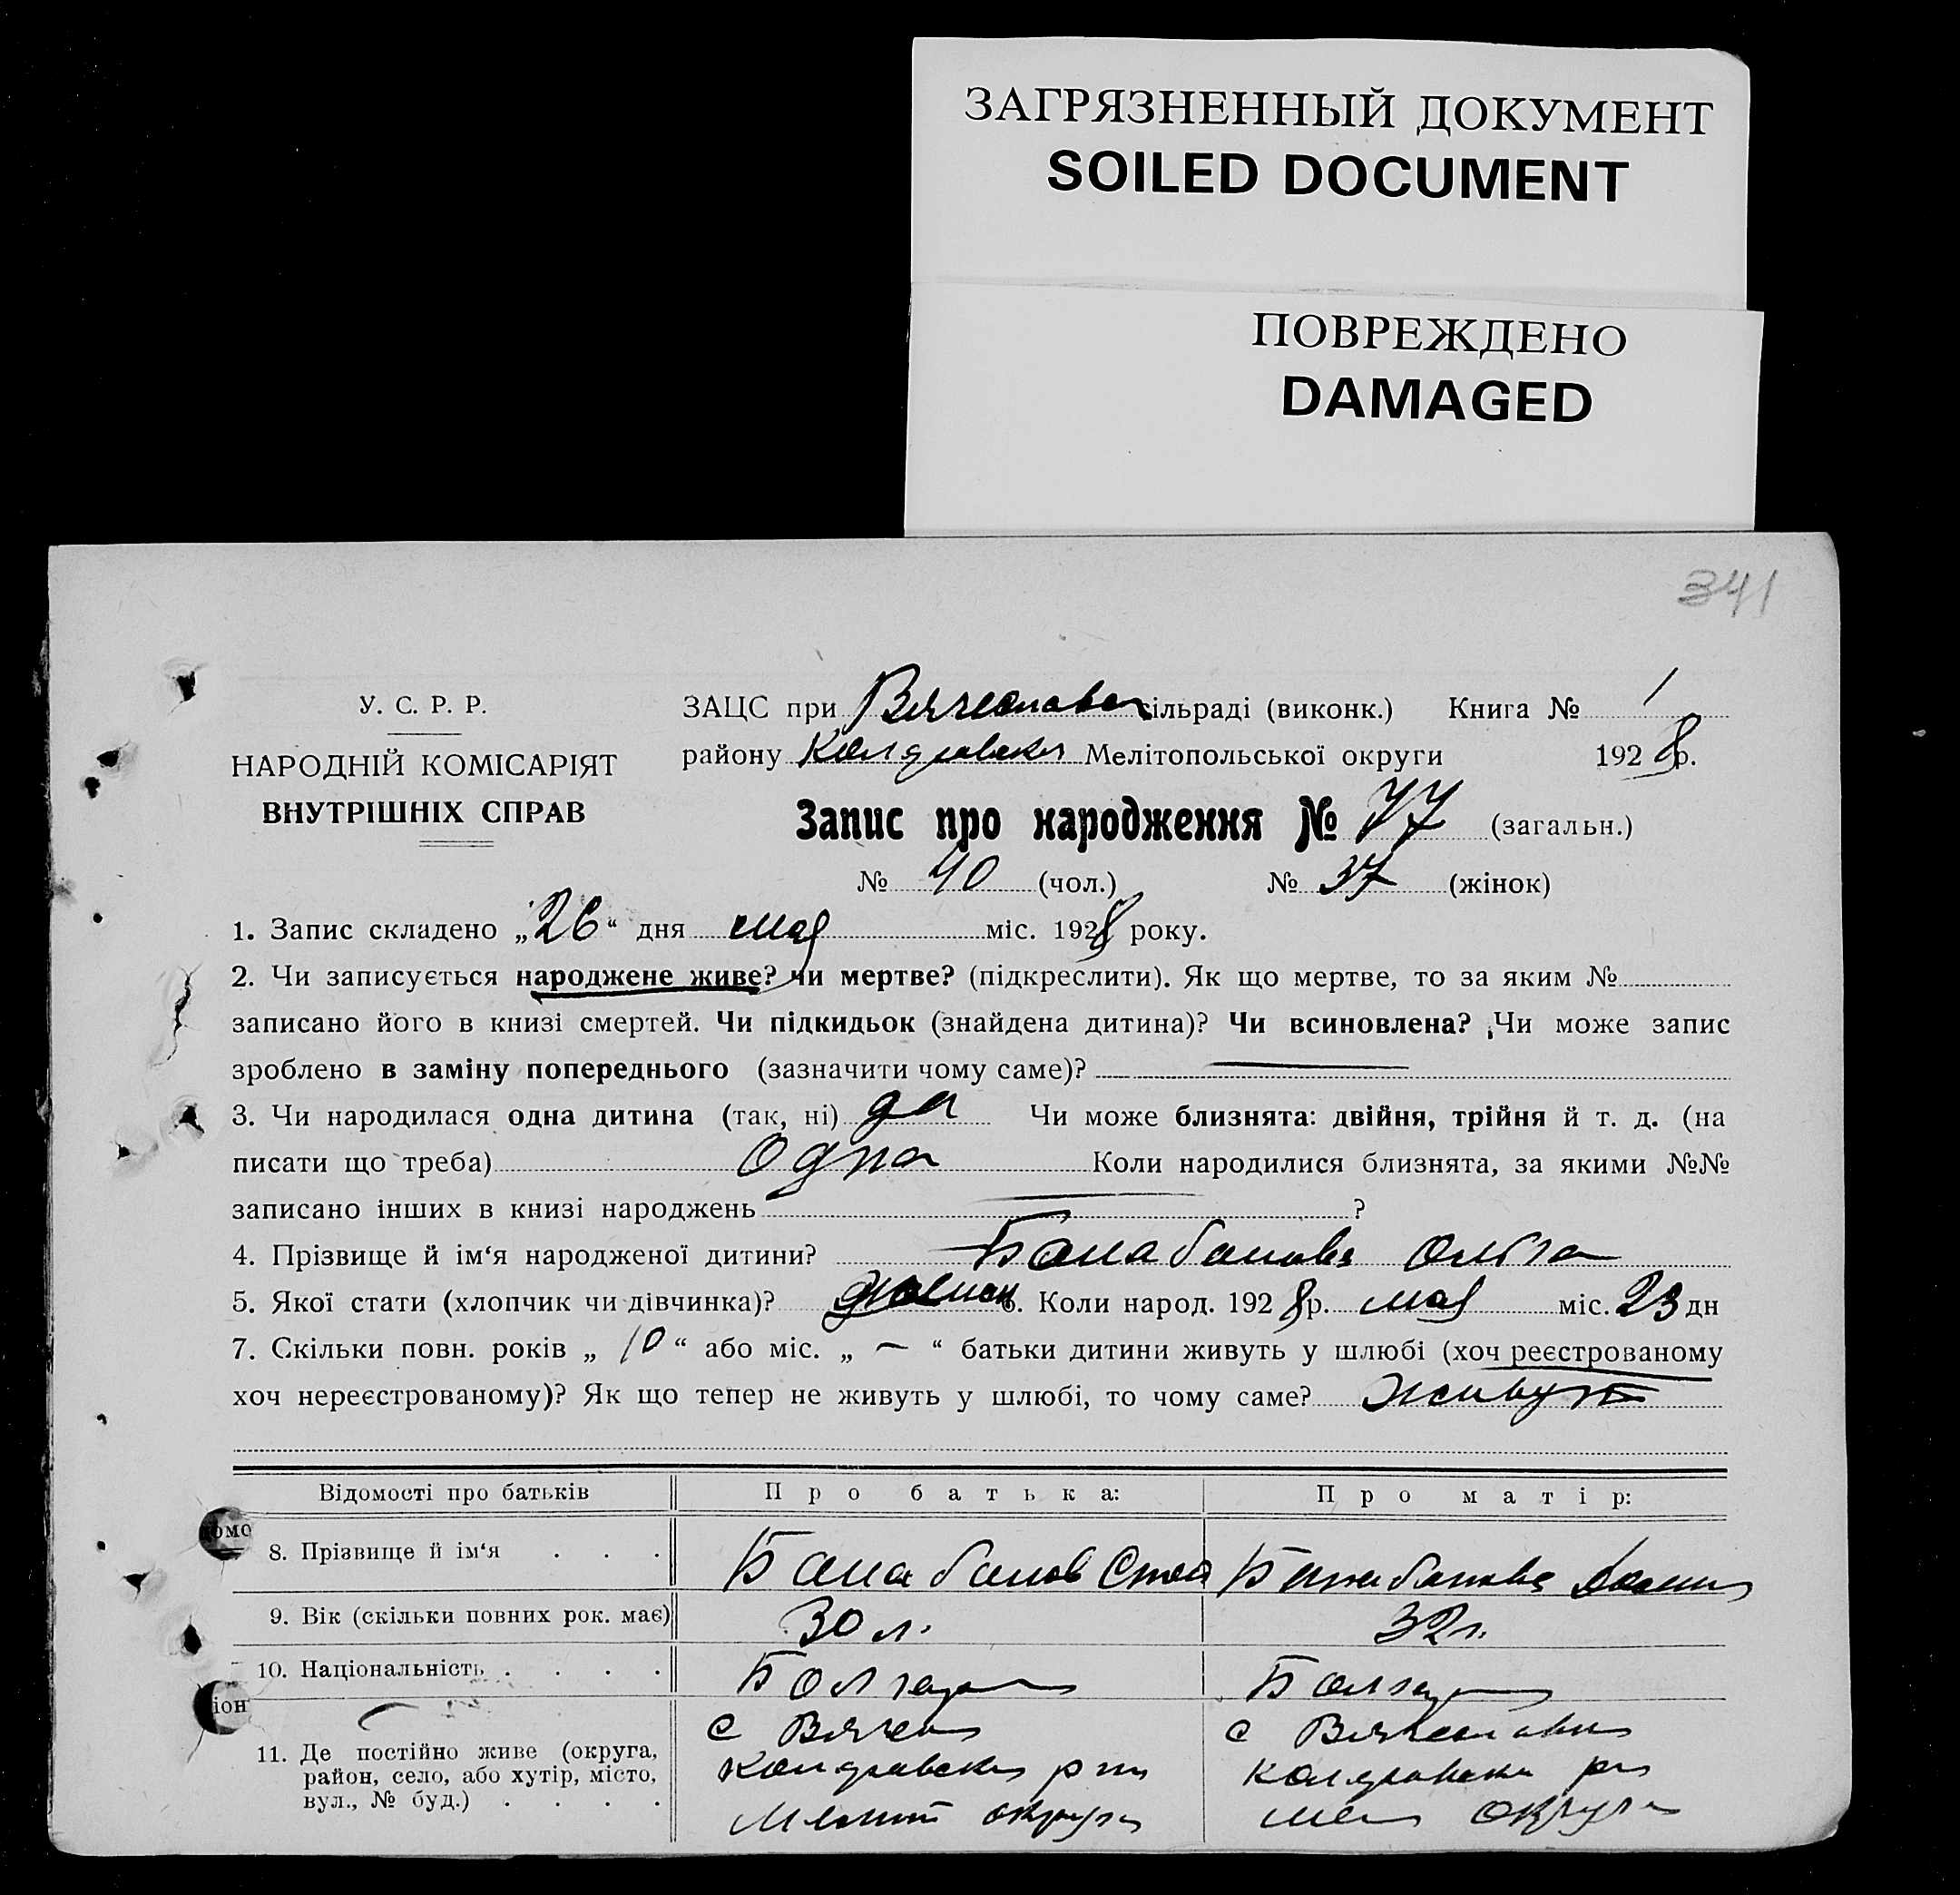 ЗАГРЯЗНЕННЫЙ ДОКУМЕНТ
SOILED DOCUMENT
ПОВРЕЖДЕНО
DAMAGED
341
У. С. Р. Р.
НАРОДНІЙ КОМІСАРІЯТ
ВНУТРІШНІХ СПРАВ
ЗАЦС при Вячеславск сільраді (виконк.) Книга № 1
району Мелітопольської округи 1928 р.
Запис про народження № 77 (загальн.)
№ 40 (чол.) № 37 (жінок)
1. Запис складено „26“ дня мая міс. 1928 року.
2. Чи записується народжене живе? чи мертве? (підкреслити). Як що мертве, то за яким №
записано його в книзі смертей. Чи підкидьок (знайдена дитина)? Чи всиновлена? Чи може запис
зроблено в заміну попереднього (зазначити чому саме)? —
3. Чи народилася одна дитина (так, ні) да Чи може близнята: двійня, трійня й т. д. (на
писати що треба) Одна Коли народилися близнята, за якими №№
записано інших в книзі народжень — ?
4. Прізвище й ім‘я народженої дитини? Балабанова Ольга
5. Якої стати (хлопчик чи дівчинка)? 6. Коли народ. 1928 р. мая міс. 23 дн
7. Скільки повн. років „ 10 “ або міс. „ — “ батьки дитини живуть у шлюбі (хоч реєстрованому
хоч нереєстрованому)? Як що тепер не живуть у шлюбі, то чому саме? Живут
Відомості про батьків Про батька: Про матір:
омо
8. Прізвище й ім‘я . . . Балабанов Балабанова
9. Вік (скільки повних рок. має) 30 л. 32 л.
10. Національність . . . . Болгар Болгар
іон
11. Де постійно живе (округа, район, село, або хутір, місто, вул., № буд.) . . . .
с Вячес с Вячеславка
округа округа